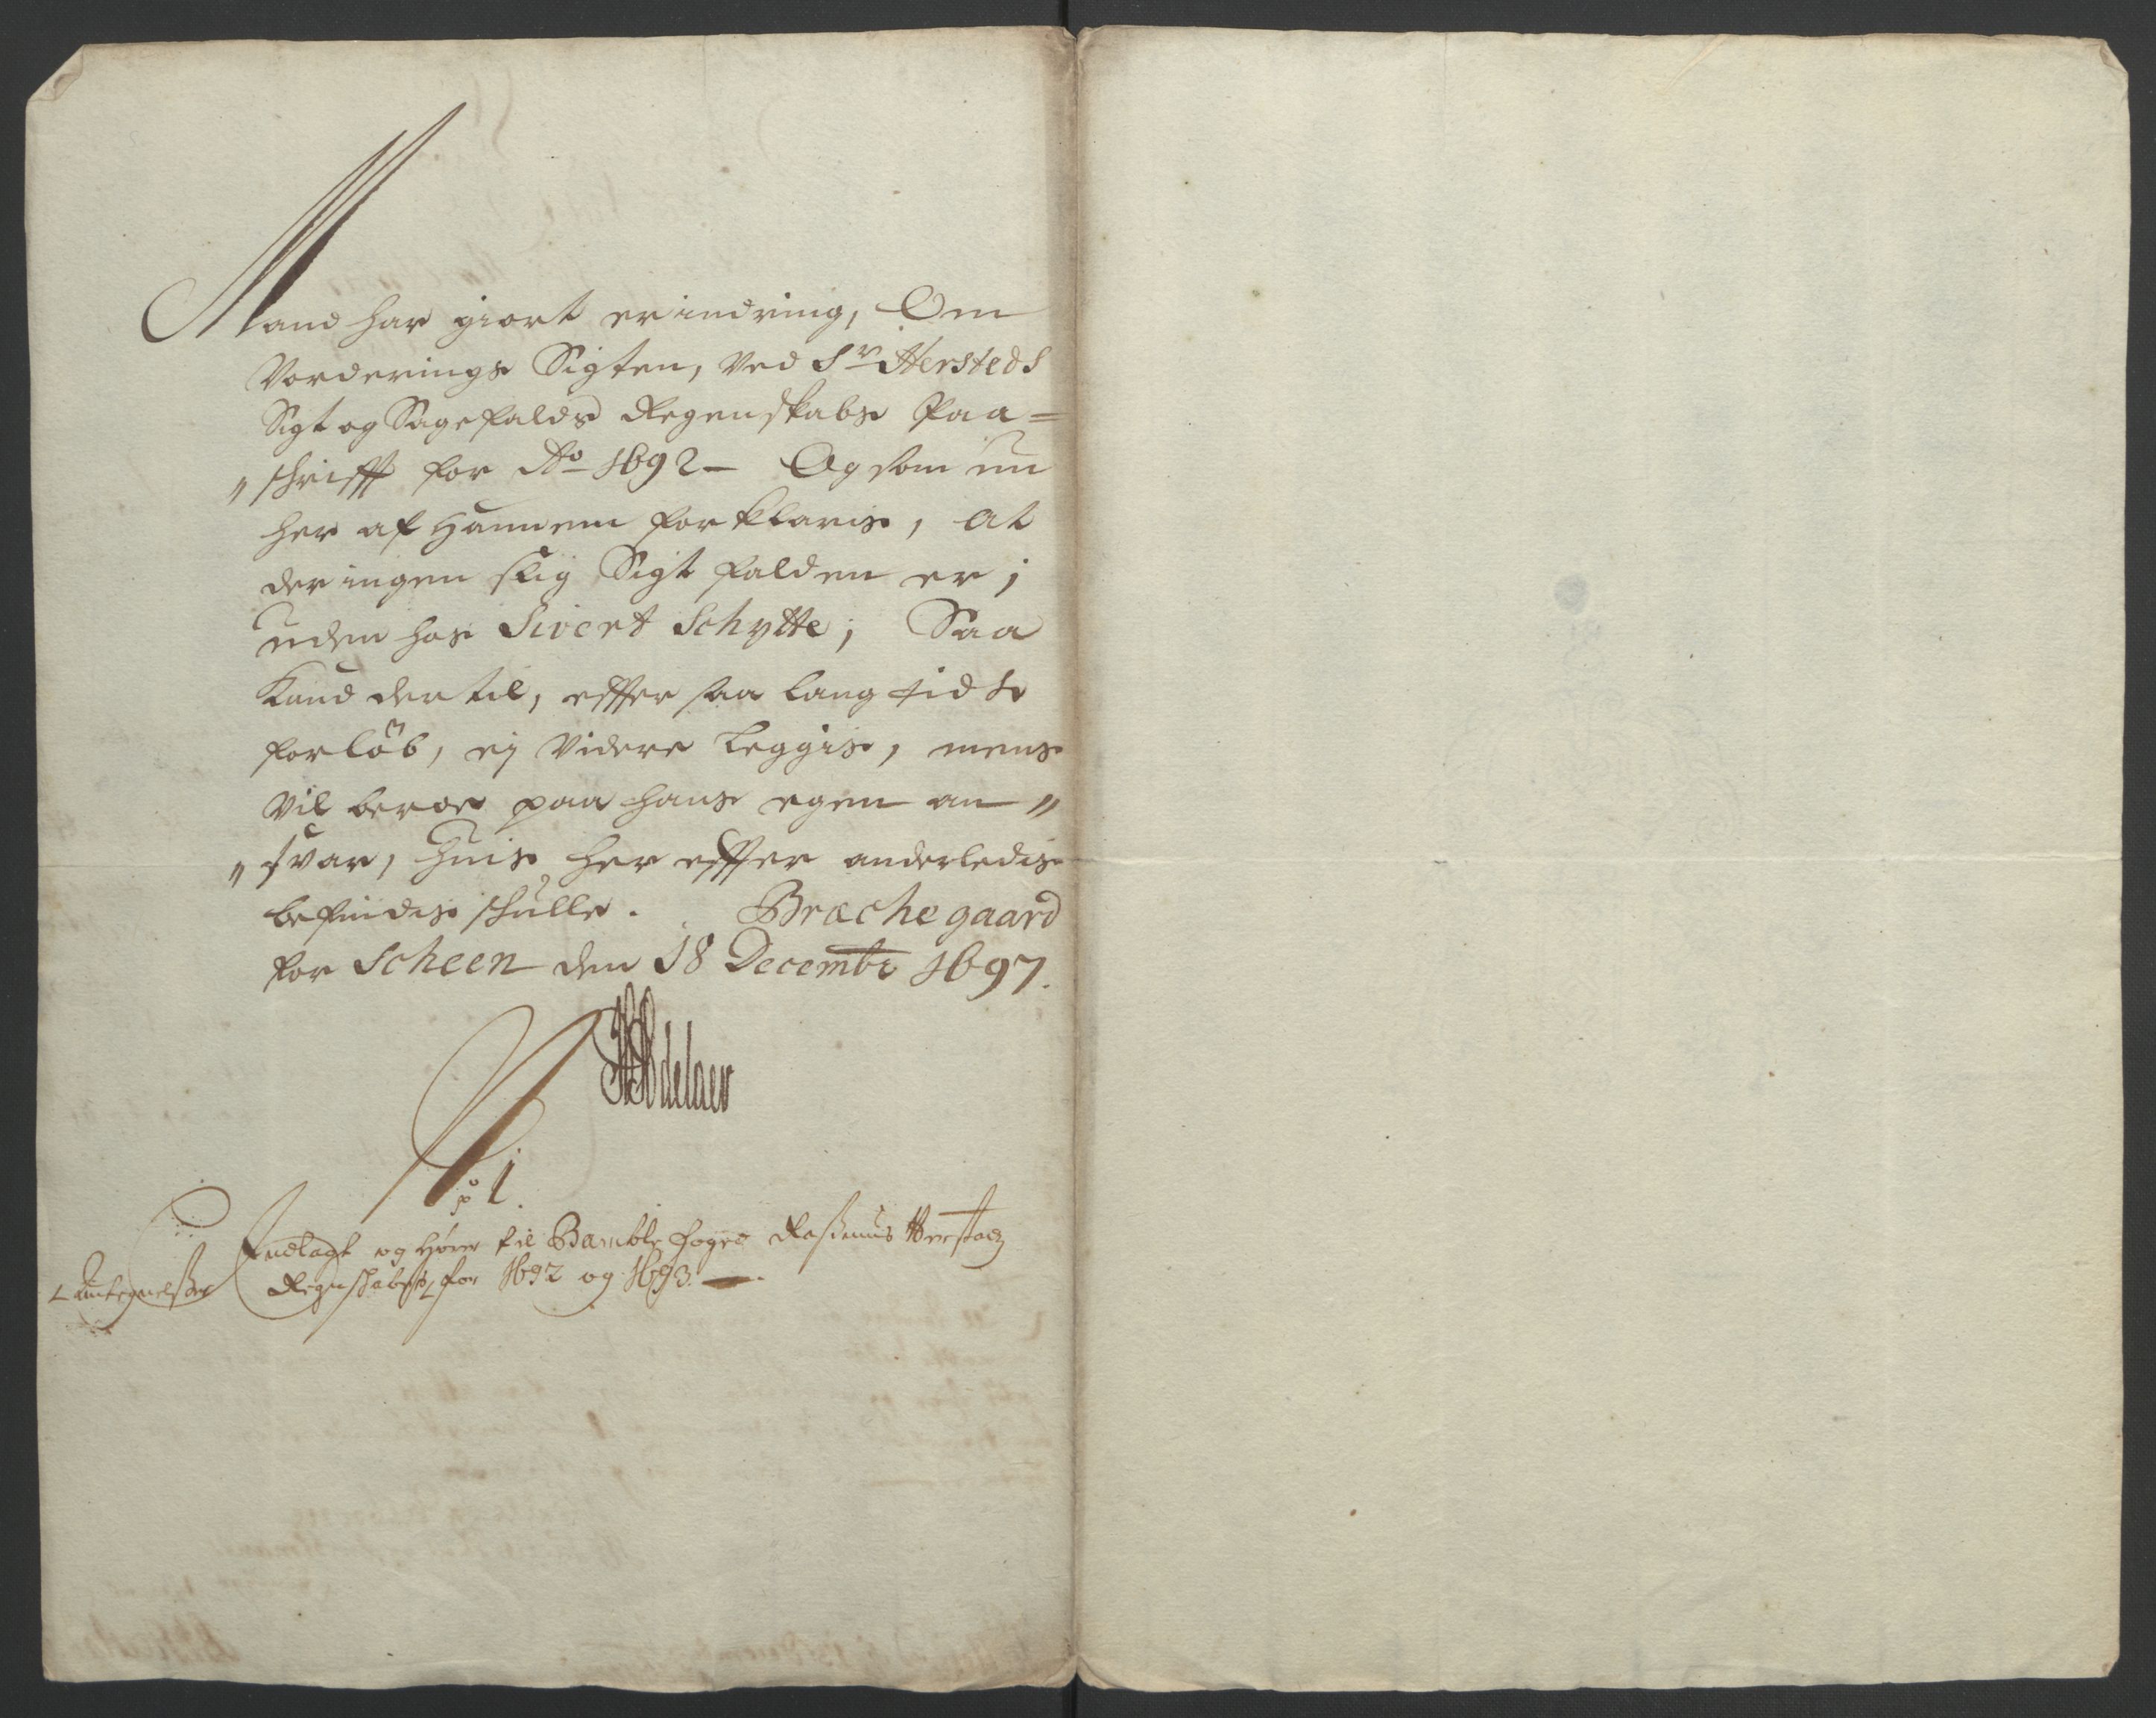 Mand har giort erindring, Om
Vorderings Sigten, Ved Sr Hersteds
Sigt og Sagefalds Regenskabs Paa=
„schrifft for Ao 1692 – Og som nu
her af Hannem forklaris, at
der ingen slig Sigt falden er;
uden hos Sivert Schytte; Saa
Kand der til, effter saa lang tids
forløb, ej Videre Leggis, mens
Vil beroe paa hans egen an„
„svar, huis her effter anderledis
befindis schulle. Brachegaard
for Scheen den 18 Decembr 1697.
HAdelaer
No 1.
Indlagt og hører til Bamble fogds Rasmus Herstads
Regnschabers for 1692 og 1693.
Antegnelsser